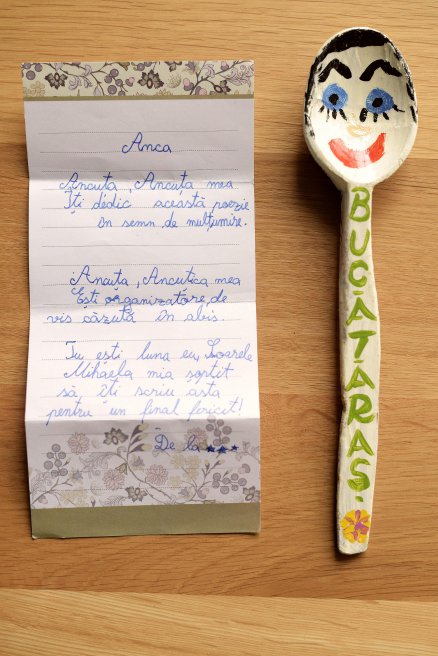 Anca
Ancuța, Ancuța mea
Îți dedic această poezie
în semn de mulțumire.
Ancuța, Ancuțica mea
Ești organizatore, de
vis căzută în abis.
Tu ești luna eu, Soarele
Mihaela mia șoptit
să îți scriu asta
pentru un final fericit!
De la ★★★★
BUCĂTARAȘ.